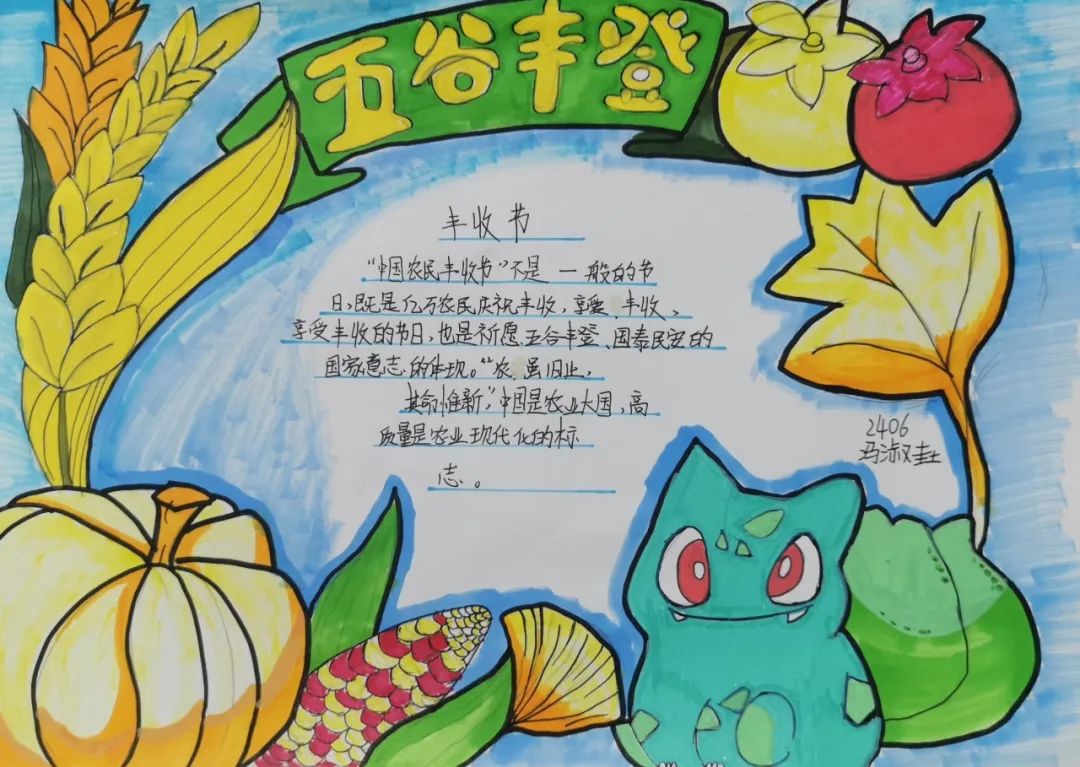 五谷丰登
丰收节
“中国农民丰收节”不是一般的节
日,既是亿万农民庆祝丰收,享受丰收、
享受丰收的节日,也是祈愿五谷丰登、国泰民安的
国家意志的体现。“农虽旧业,
其命惟新”,中国是农业大国,高
质量是农业现代化的标
志。
2406
冯淑